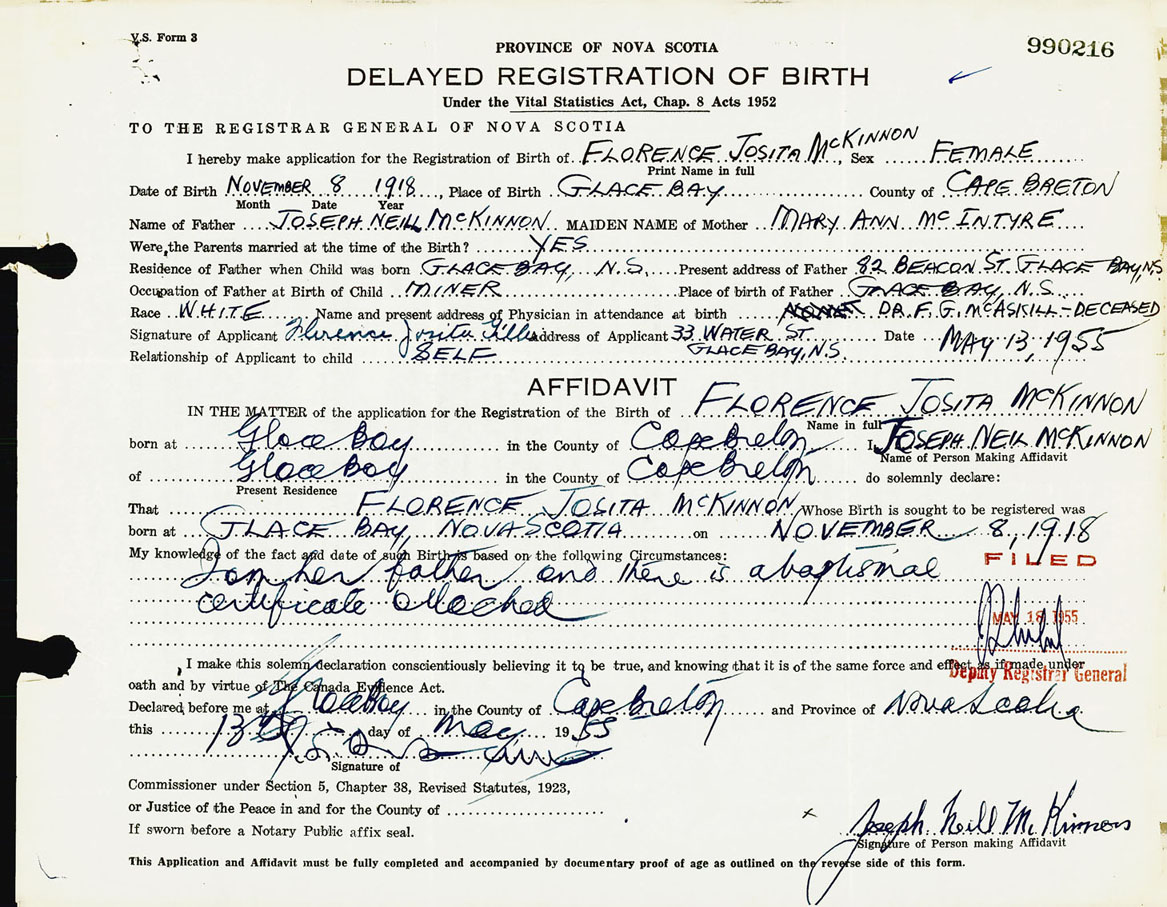 V.S. Form 3
PROVINCE OF NOVA SCOTIA
990216
DELAYED REGISTRATION OF BIRTH
Under the Vital Statistics Act, Chap. 8 Acts 1952
TO THE REGISTRAR GENERAL OF NOVA SCOTIA
I hereby make application for the Registration of Birth of FLORENCE JOSITA McKINNON, Sex FEMALE
Print Name in full
Date of Birth NOVEMBER 8 1918, Place of Birth GLACE BAY County of CAPE BRETON
Month Date Year
Name of Father JOSEPH NEILL McKINNON MAIDEN NAME of Mother MARY ANN McINTYRE
Were the Parents married at the time of the Birth? YES
Residence of Father when Child was born GLACE BAY, N.S. Present address of Father 82 BEACON ST. GLACE BAY, N.S
Occupation of Father at Birth of Child MINER Place of birth of Father GLACE BAY, N.S.
Race WHITE Name and present address of Physician in attendance at birth NONE DR. F. G. McASKILL - DECEASED
Signature of Applicant Florence Josita Address of Applicant 33 WATER ST. Date MAY 13, 1955
GLACE BAY, N.S.
Relationship of Applicant to child SELF
AFFIDAVIT
IN THE MATTER of the application for the Registration of the Birth of FLORENCE JOSITA McKINNON
Name in full
born at Glace Bay in the County of Cape Breton I, JOSEPH NEIL McKINNON
Name of Person Making Affidavit
of Glace Bay in the County of Cape Breton do solemnly declare:
Present Residence
That FLORENCE JOSITA McKINNON Whose Birth is sought to be registered was
born at GLACE BAY, NOVA SCOTIA on NOVEMBER 8, 1918
My knowledge of the fact and date of such Birth is based on the following Circumstances:
FILED
I am her father and there is a baptismal
certificate attached
MAY 18 1955
I make this solemn declaration conscientiously believing it to be true, and knowing that it is of the same force and effect as if made under
Deputy Registrar General
oath and by virtue of The Canada Evidence Act.
Declared before me at Glace Bay in the County of Cape Breton and Province of Nova Scotia
this 13th day of May 1955
Signature of
Commissioner under Section 5, Chapter 38, Revised Statutes, 1923,
or Justice of the Peace in and for the County of
If sworn before a Notary Public affix seal.
x Joseph Neill McKinnon
Signature of Person making Affidavit
This Application and Affidavit must be fully completed and accompanied by documentary proof of age as outlined on the reverse side of this form.